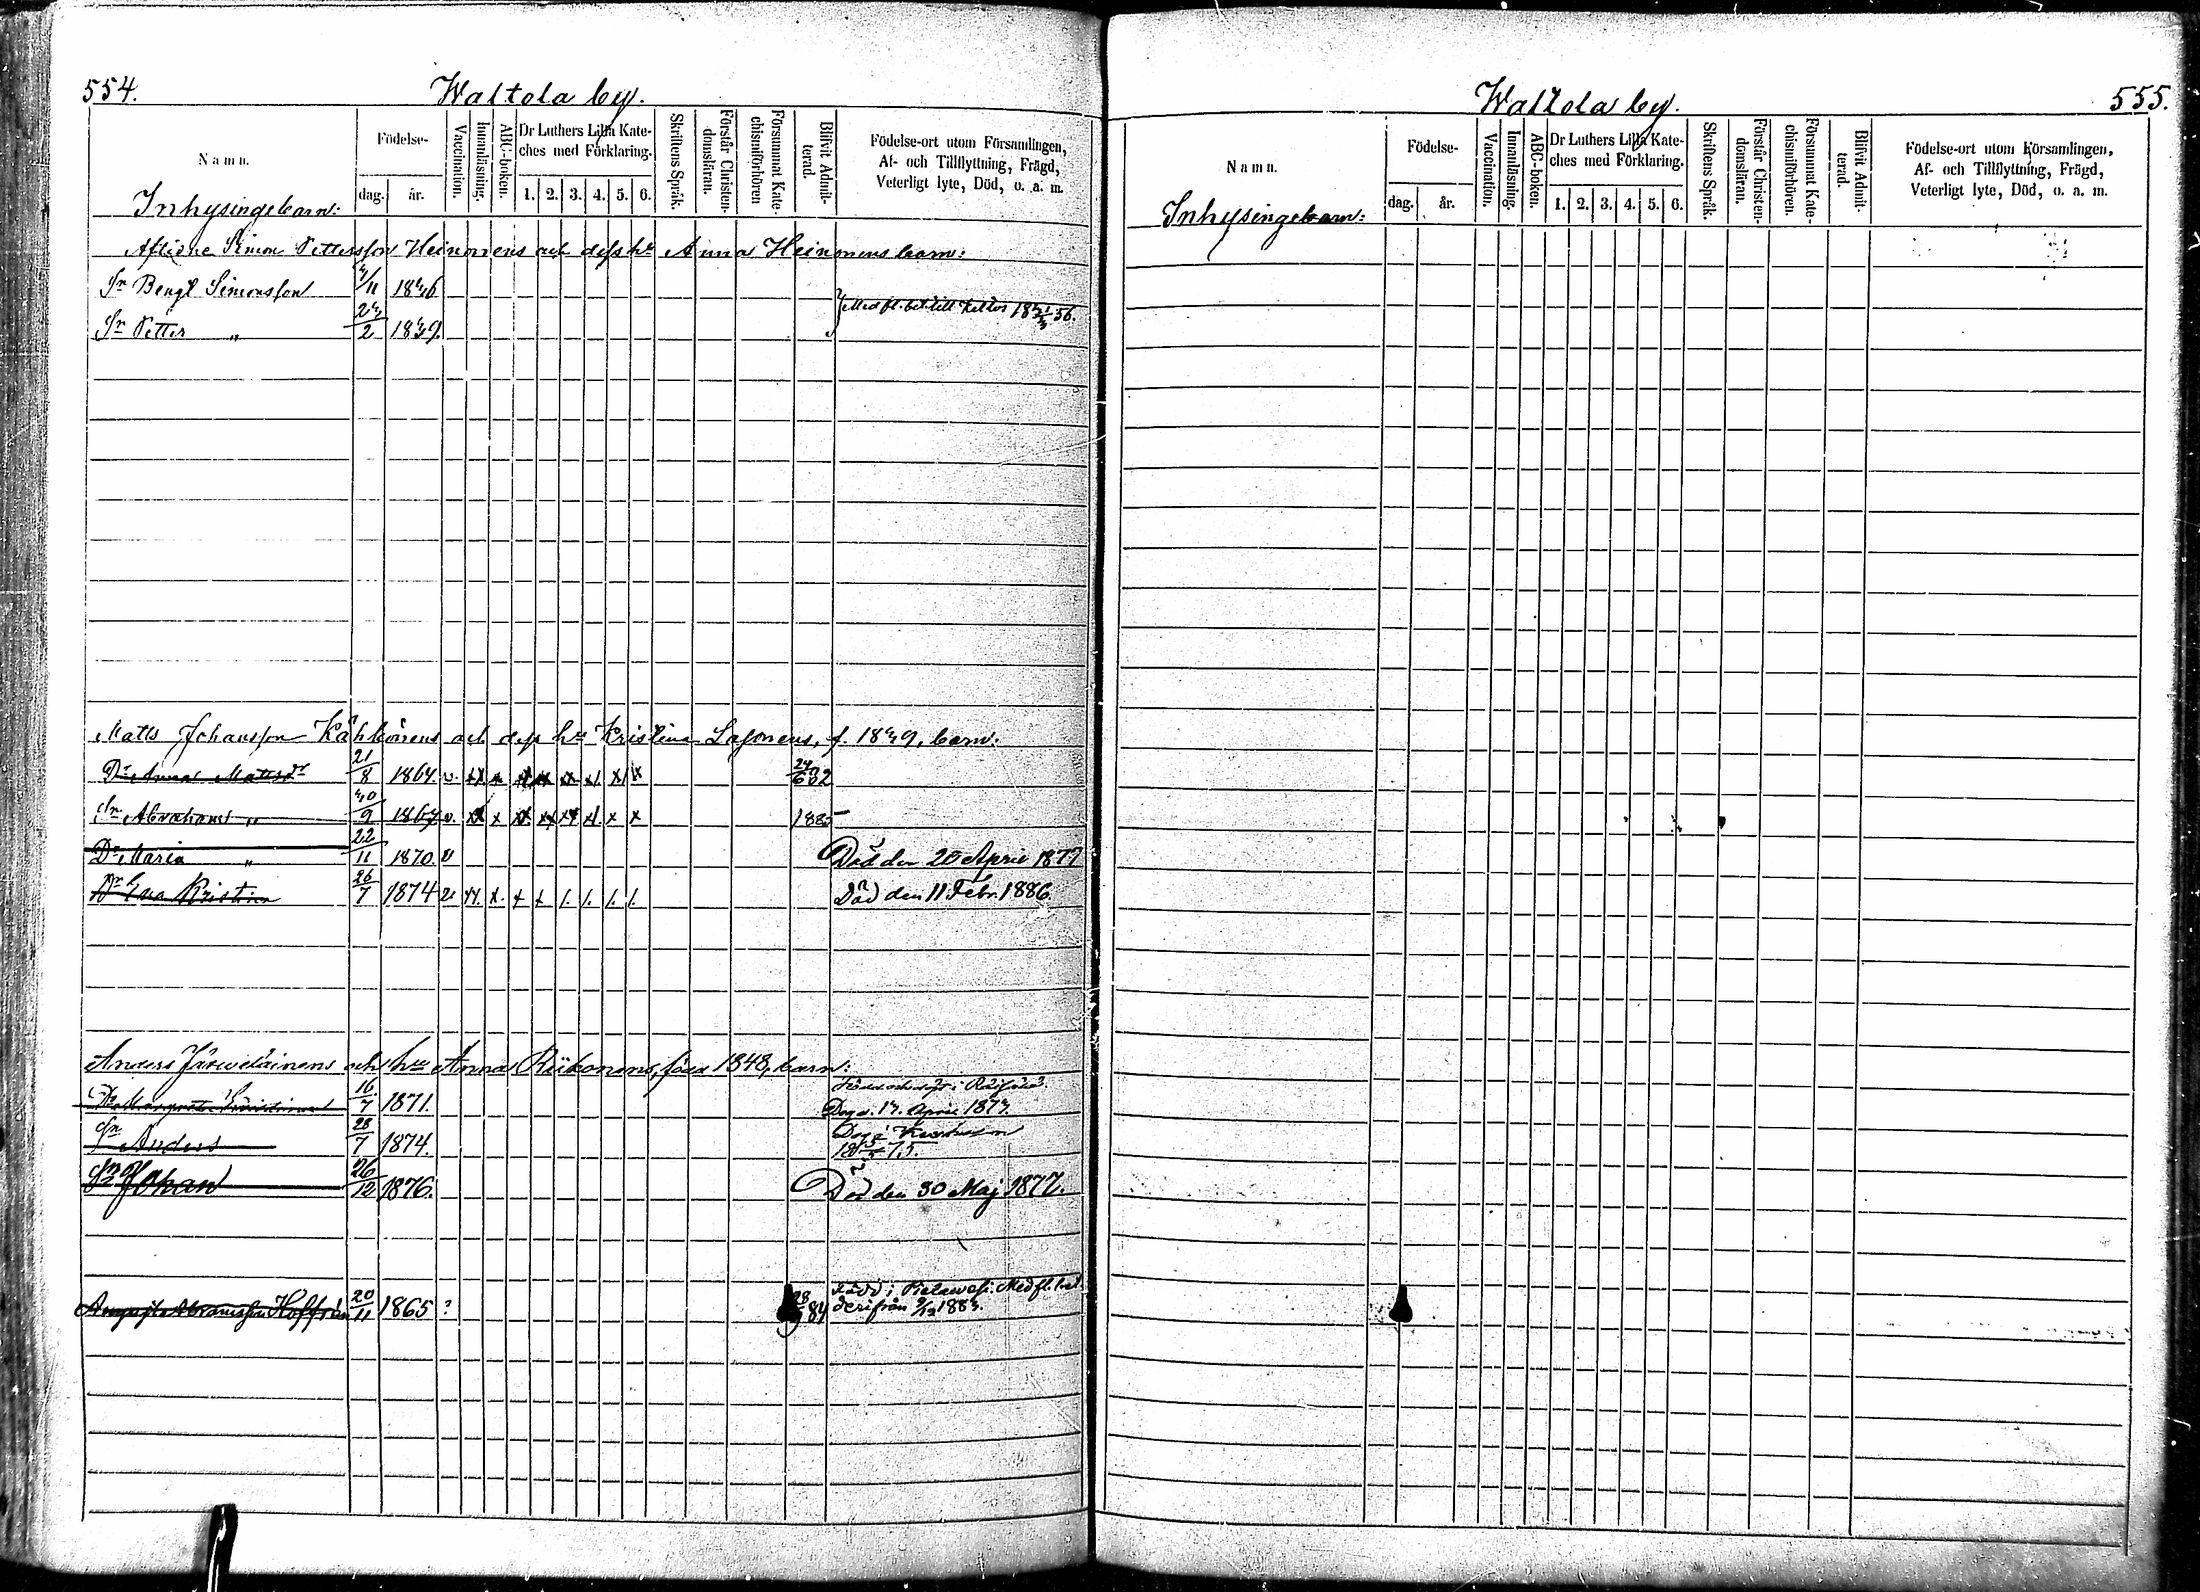 554.
Waltola by.
Namn.
Födelse-
dag.
år.
Vaccination.
Innanläsning.
ABC-boken.
Dr Luthers Lilla Kate-
ches med Förklaring.
1. 2. 3. 4. 5. 6.
Skriftens Språk.
Förstår Christen-
domsläran.
Försummat Kate-
chismiförhören
Blifvit Admit-
terad.
Födelse-ort utom Församlingen,
Af- och Tillflyttning, Frägd,
Veterligt lyte, Död, o. a. m.
Inhysingebarn:
Aflidne Simon Pettersson Heinonens och dess hu Anna Heinonens barn:
Sn Bengt Simonsson 11 1846
Med fl. bet. till
Sn Petter " 2
Matts Johansson Kähkönens och dess hu Kristina barn:
Dr Anna Mattsdr 21/8 1864. v. x x x x x x x x 24/6 82
Sn Abraham " 9 1867 v. x x x x x x x x 1885
Dr Maria " 22/11 1870. v Död den 20 April 1877
Dr Eva Kristina 26/7 1874 v x x x x Död den 11 Febr. 1886.
Anders Järweläinens och hu Anna Riikonens, född 1848, barn:
Dr Margreta 16/7 1871. Dog d. 17. April 187
Sn Anders 28/7 1874. Dog i
Sn Johan 26/12 1876. Död den 30 Maj 1877.
August Abramsson Hoffrén 20/11 1865 ? 28/9 84 Född i Pielawesi. Med fl. bet.
derifrån 9/12 188
Waltola by.
555.
Namn.
Födelse-
dag.
år.
Vaccination.
Innanläsning.
ABC-boken.
Dr Luthers Lilla Kate-
ches med Förklaring.
1. 2. 3. 4. 5. 6.
Skriftens Språk.
Förstår Christen-
domsläran.
Försummat Kate-
chismiförhören.
Blifvit Admit-
terad.
Födelse-ort utom Församlingen,
Af- och Tillflyttning, Frägd,
Veterligt lyte, Död, o. a. m.
Inhysingebarn: